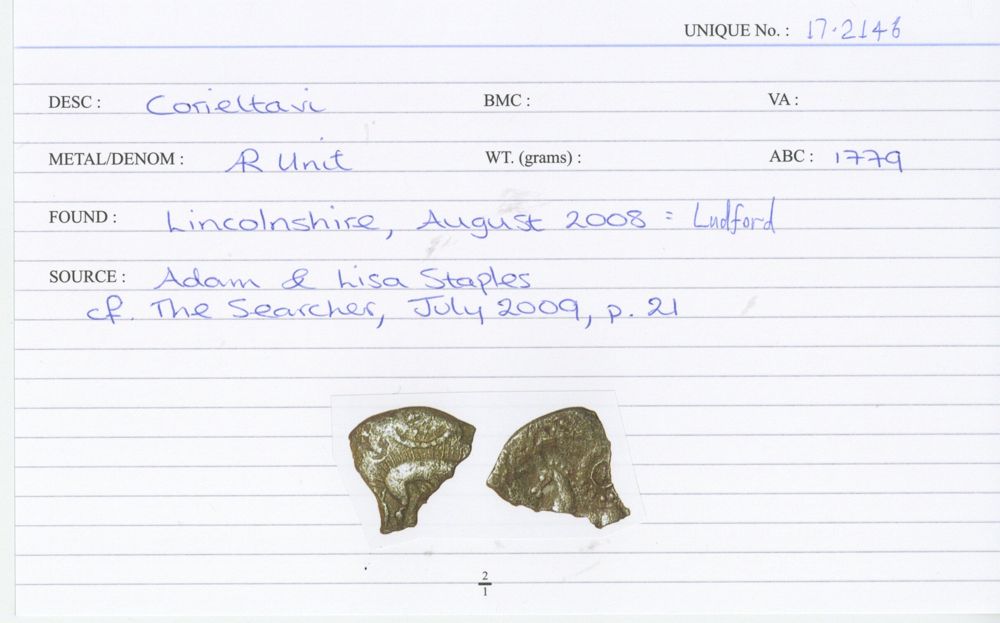 UNIQUE No. : 17.2146
DESC : Corieltavi BMC : VA :
METAL/DENOM : AR Unit WT. (grams) : ABC : 1779
FOUND : Lincolnshire, August 2008 = Ludford
SOURCE : Adam & Lisa Staples
cf. The Searcher, July 2009, p. 21
2
1